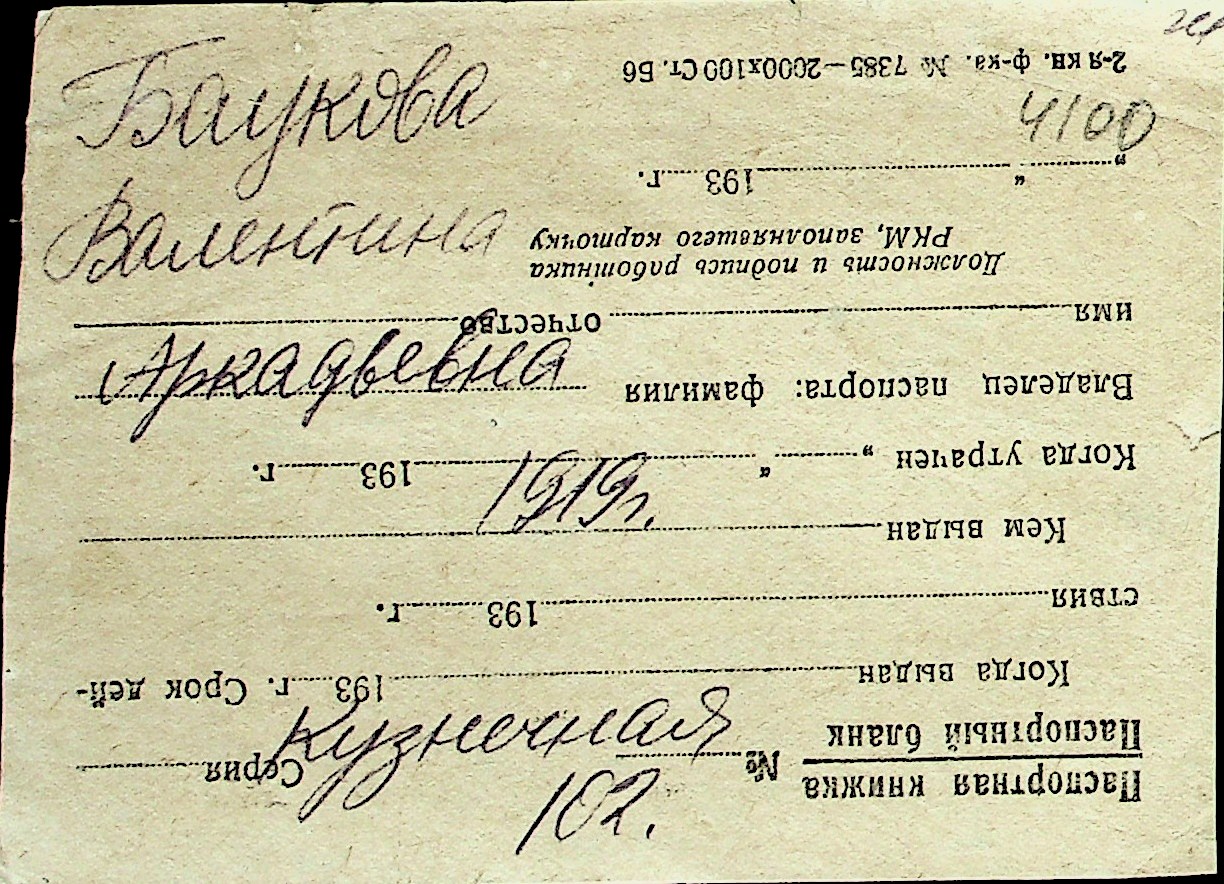 Баукова
Валентина
Аркадьевна
1919 г.
Кузнечная
102.
4100
Паспортная книжка
Паспортный бланк № Серия
Когда выдан 193 г. Срок дей-
ствия 193 г.
Кем выдан
Когда утрачен „ “ 193 г.
Владелец паспорта: фамилия
имя отчество
Должность и подпись работника
РКМ, заполнявшего карточку
„ “ 193 г.
2-я кн. ф-ка. № 7385—2000х100 Ст. Б6